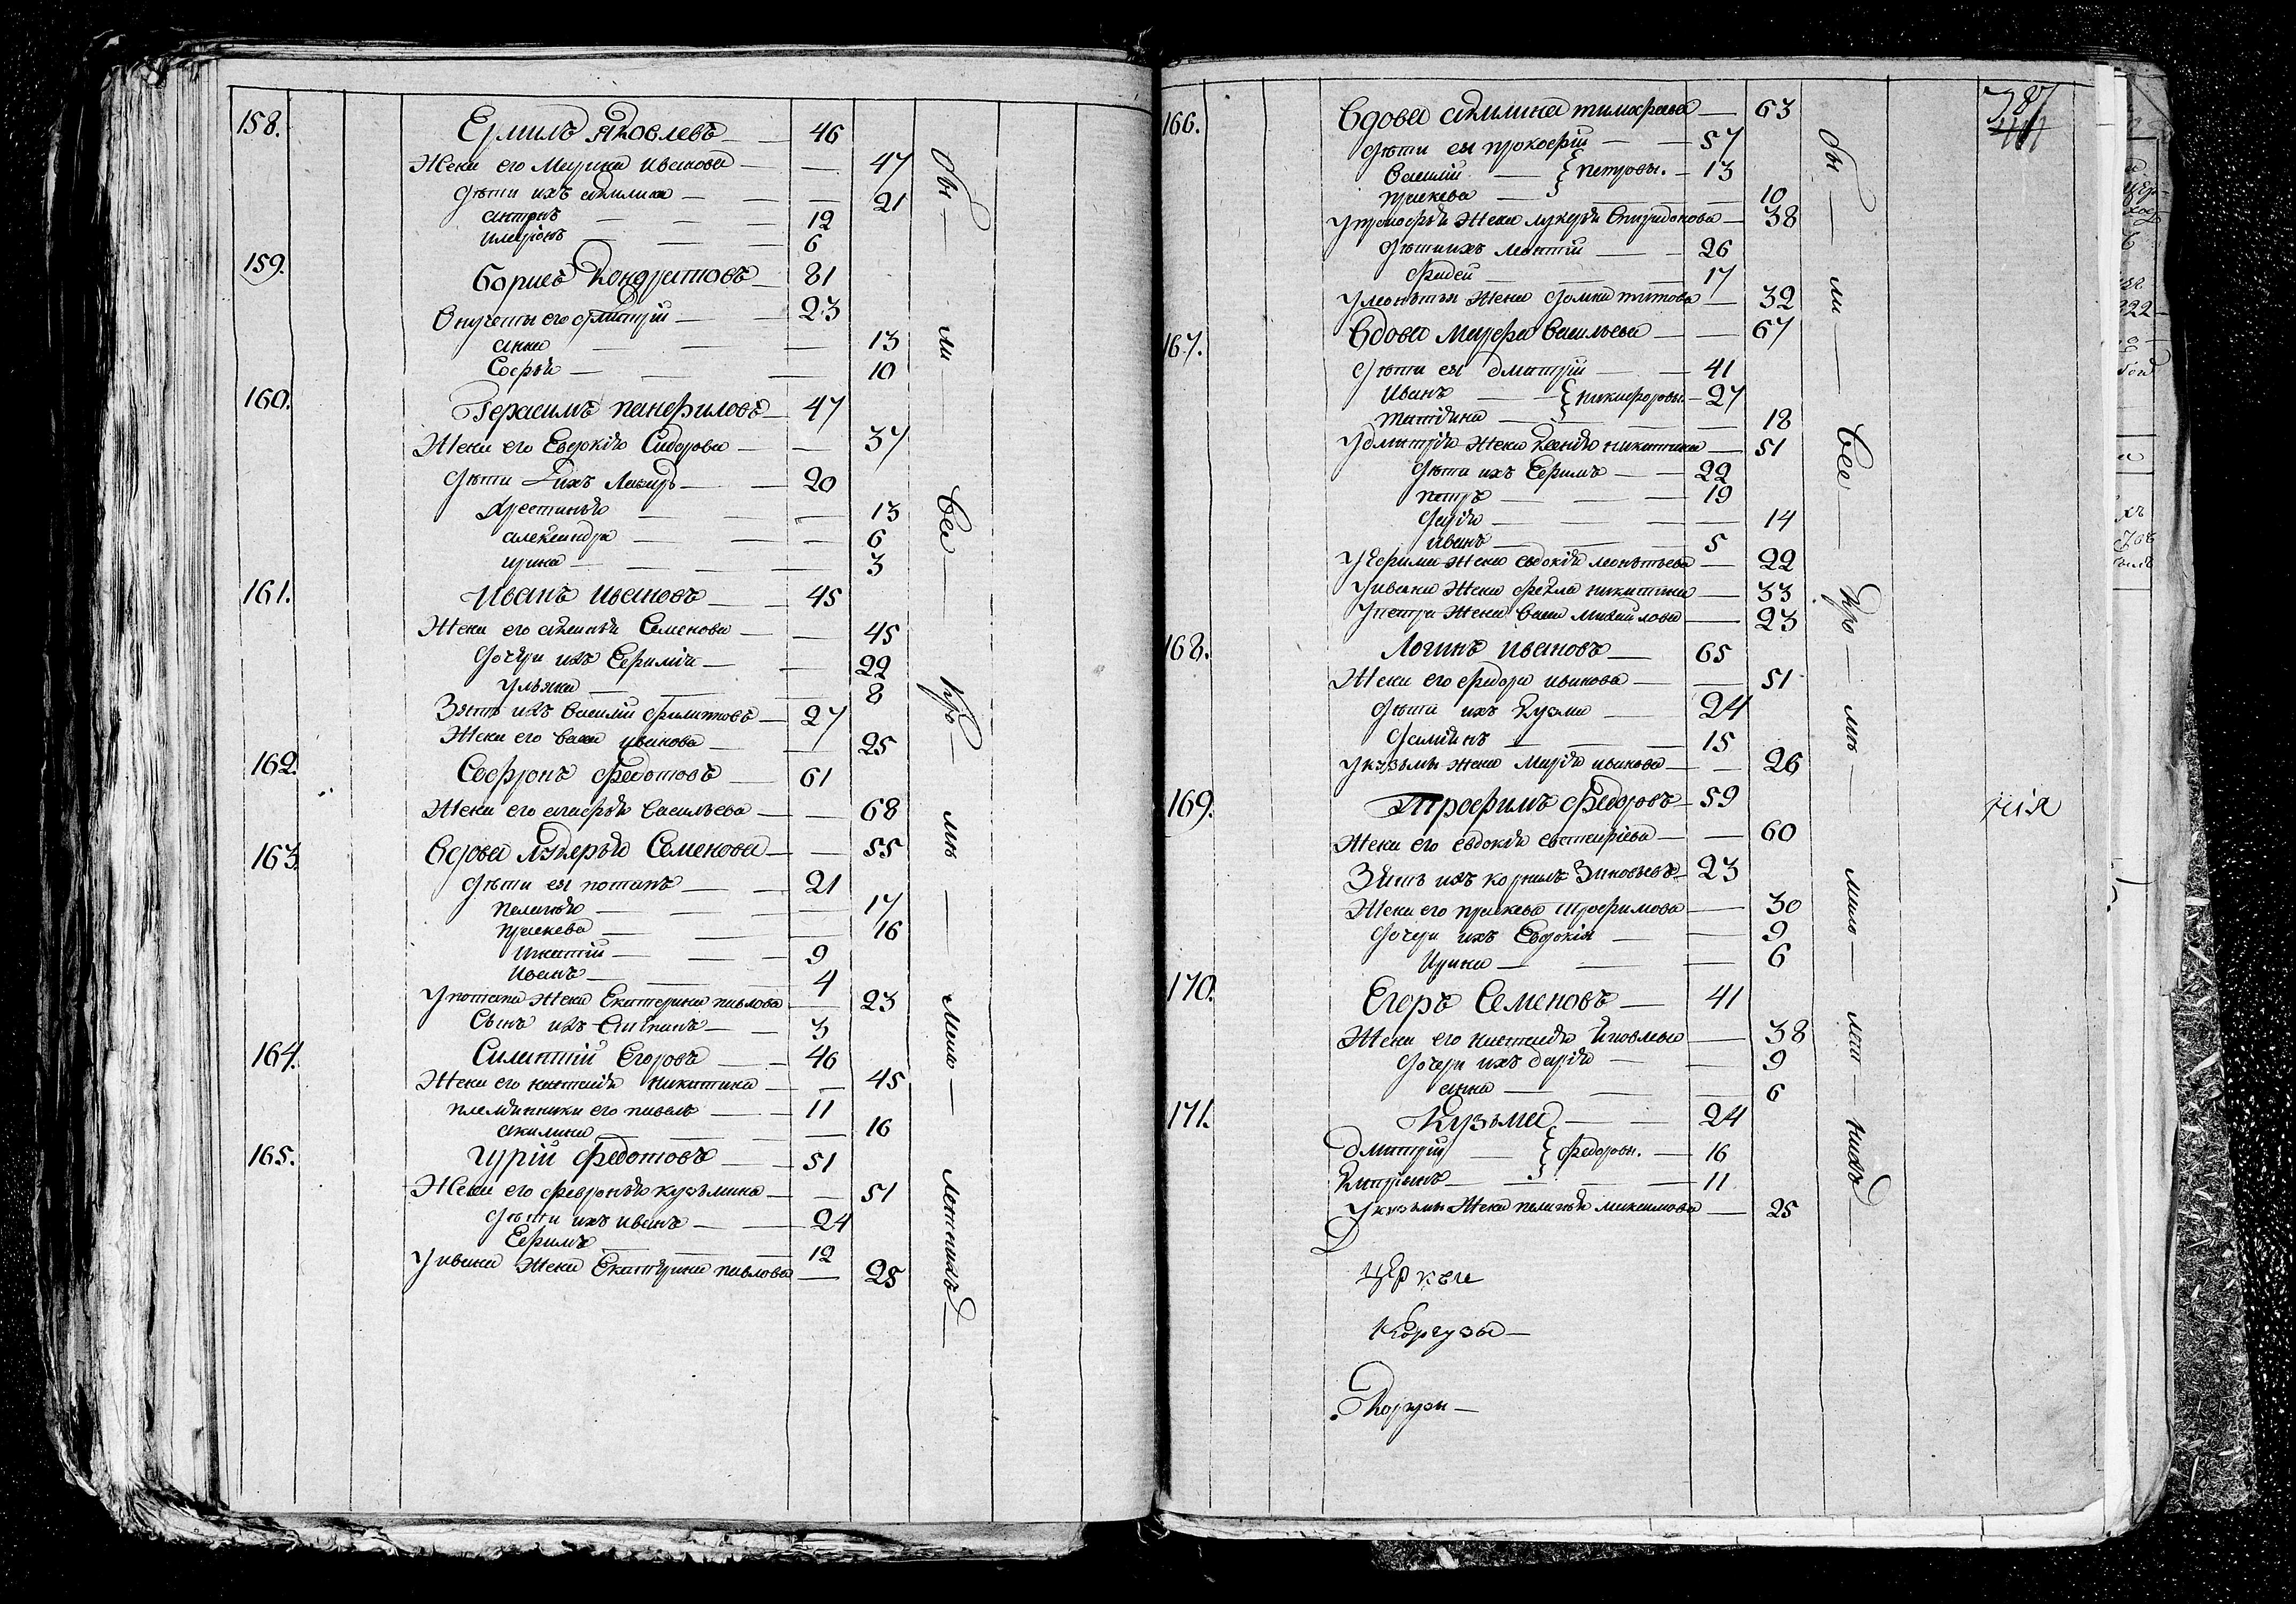 158. Ермилъ Яковлевъ — 46
Жена его Марина Иванова — 47
Дѣти ихъ Акилина — 21
Антонъ — 12
Иларіонъ — 6
159. Борисъ Кондратовъ — 81
Внучеты его Дмитрій — 23
Анна — 13
Софья — 10
160. Герасимъ Панфиловъ — 47
Жена его Евдокія Сидорова — 37
Дѣти ихъ Лазарь — 20
Хрестинья — 13
Александра — 6
Ирина — 3
161. Иванъ Ивановъ — 45
Жена его Ксенья Семенова — 45
Дочери ихъ Ефимія — 22
Ульяна — 8
Зять ихъ Василій Филиповъ — 27
Жена его Васса Иванова — 25
162. Софронъ Федотовъ — 61
Жена его Агафья Васильева — 68
163. Вдова Лукерья Семенова — 55
Дѣти ея Потапъ — 21
Пелагья — 17
Праскева — 16
Игнатій — 9
Иванъ — 4
У Потапа Жена Екатерина Павлова — 23
Сынъ ихъ Степанъ — 3
164. Силантій Егоровъ — 46
Жена его Настасія Никитина — 45
Племянники его Павелъ — 11
Акилина — 16
165. Гурій Федотовъ — 51
Жена его Февронья Кузьмина — 51
Дѣти ихъ Иванъ — 24
Ефимъ — 12
У Ивана Жена Екатерина Павлова — 25
бы — ли — все — кро — мѣ — мало — летнихъ
381
166. Вдова Акилина Тимофеева — 63
Дѣти ея Прокофій — 57
Василій — Петровы. — 13
Праскева — 10
У Прокофья Жена Лукерья Спиридонова — 38
Дѣти ихъ Леонтій — 26
Фадей — 17
У Леонтья Жена Домна Титова — 32
167. Вдова Марфа Васильева — 67
Дѣти ея Дмитрій — 41
Иванъ — Никифоровы — 27
Татьяна — 18
У Дмитрія Жена Ксенія Никитина — 51
Дѣти ихъ Ефимъ — 22
Петръ — 19
Дарія — 14
Иванъ — 5
У Ефима Жена Евдокія Леонтьева — 22
У Ивана Жена Фекла Никитина — 33
У Петра Жена Васса Михайлова — 23
168. Логинъ Ивановъ — 65
Жена его Федора Иванова — 51
Дѣти ихъ Кузма — 24
Дамьянъ — 15
У Кузьмы Жена Марія Иванова — 26
169. Трофимъ Федоровъ — 59
Жена его Евдокія Евстафіева — 60
Зять ихъ Корнилъ Зиновьевъ — 23
Жена его Праскева Трофимова — 30
Дочери ихъ Евдокія — 9
Ирина — 6
170. Егоръ Семеновъ — 41
Жена его Настасія Яковлева — 38
Дочери ихъ Дарія — 9
Анна — 6
171. Кузьма — 24
Дмитрій — Федоровы. — 16
Кипріянъ — 11
У Кузьмы Жена Пелагея Максимова — 25
бы — ли — все — кро — мѣ — мало — лет — нихъ
сія
церкви
Коргузы —